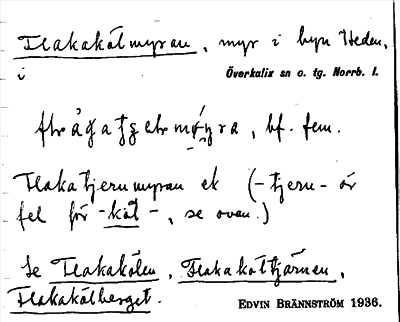 Flakakölmyran, myr i byn Heden,
i Överkalix sn o. tg. Norrb. l.
bf. fem.
Flakatjernmyran ek (-tjern- är
fel för -köl-, se ovan.)
Se Flakakölen, Flakaköltjärnen,
Flakakölberget.
EDVIN BRÄNNSTRÖM 1936.